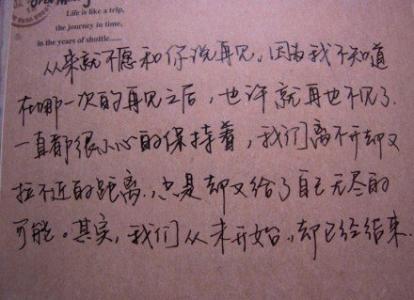 Life is like a trip,
the journey in time,
in the years of shuttle......
从来就不愿和你说再见。因为我不知道
在哪一次的再见之后，也许就再也不见了.
一直都很小心的保持着，我们离不开却又
拉不近的距离.总是却又给了自己无尽的
可能。其实，我们从未开始，却已经结束.